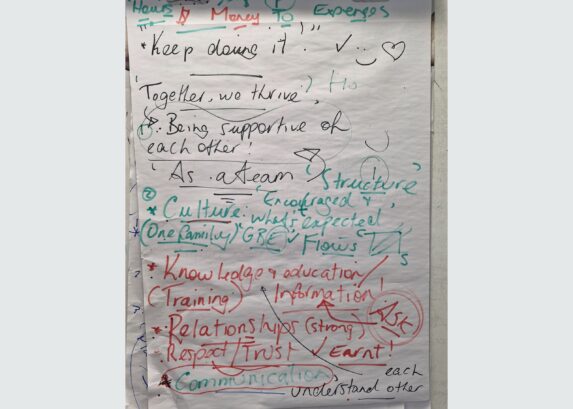 Hours & Money TO Expenses
* Keep doing it! ✓
Together, we thrive,
Being supportive of
each other!
As a team
"Structure"
②
Encouraged &
* Culture: What's expected
(One Family) GRE ✓ Flows
* Knowledge & education/
(Training) Information!
Ask
* Relationships (strong)
* Respect/Trust ✓ Earnt!
* Communication,
each
understand other